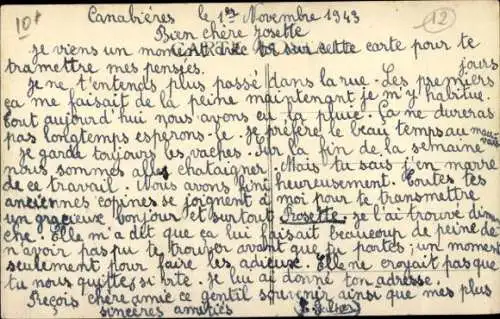 10f
12
Canabières le 1er Novembre 1943
Bien chère Josette
je viens un moment sur cette carte pour te
tramettre mes pensées.
je ne t'entends plus passé dans la rue. Les premiers jours
ça me faisait de la peine maintenant je m'y habitue.
Tout aujourd'hui nous avons eu la pluie. Ça ne dureras
pas longtemps esperons-le. je préfère le beau temps au mauvais
je garde toujours les vaches. Sur la fin de la semaine
nous sommes allés chataigner. Mais tu sais j'en marre
de ce travail. Nous avons fini heureusement. Toutes tes
anciennes copines se joignent à moi pour te transmettre
un gracieux bonjour et surtout Rosette. je l'ai trouvé diman
che. Elle m'a dit que ça lui faisait beaucoup de peine de
n'avoir pas pu te trouver avant que tu partes; un moment
seulement pour faire les adieux. Elle ne croyait pas que
tu nous quittes si vite. je lui ai donné ton adresse.
Reçois chère amie ce gentil souvenir ainsi que mes plus
sincères amitiés